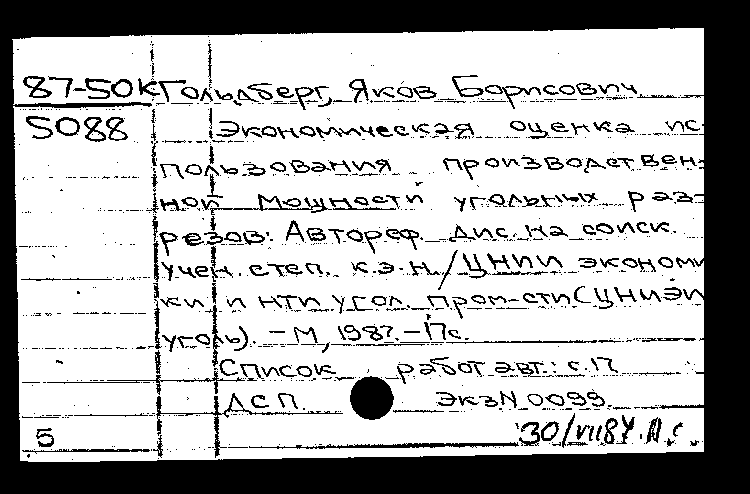 87-50к Гольдберг, Яков Борисович
5088 Экономическая оценка ис-
пользования производствен-
ной мощности угольных раз-
резов: Автореф. дис. на соиск.
учен. степ. к.э.н./ЦНИИ экономи
ки и НТИ угол. пром-сти(ЦНИЭИ
уголь). – М, 1987. – 17с.
Список работ авт.: с.17
ДСП. Экз N 0099.
5 30/VII87.